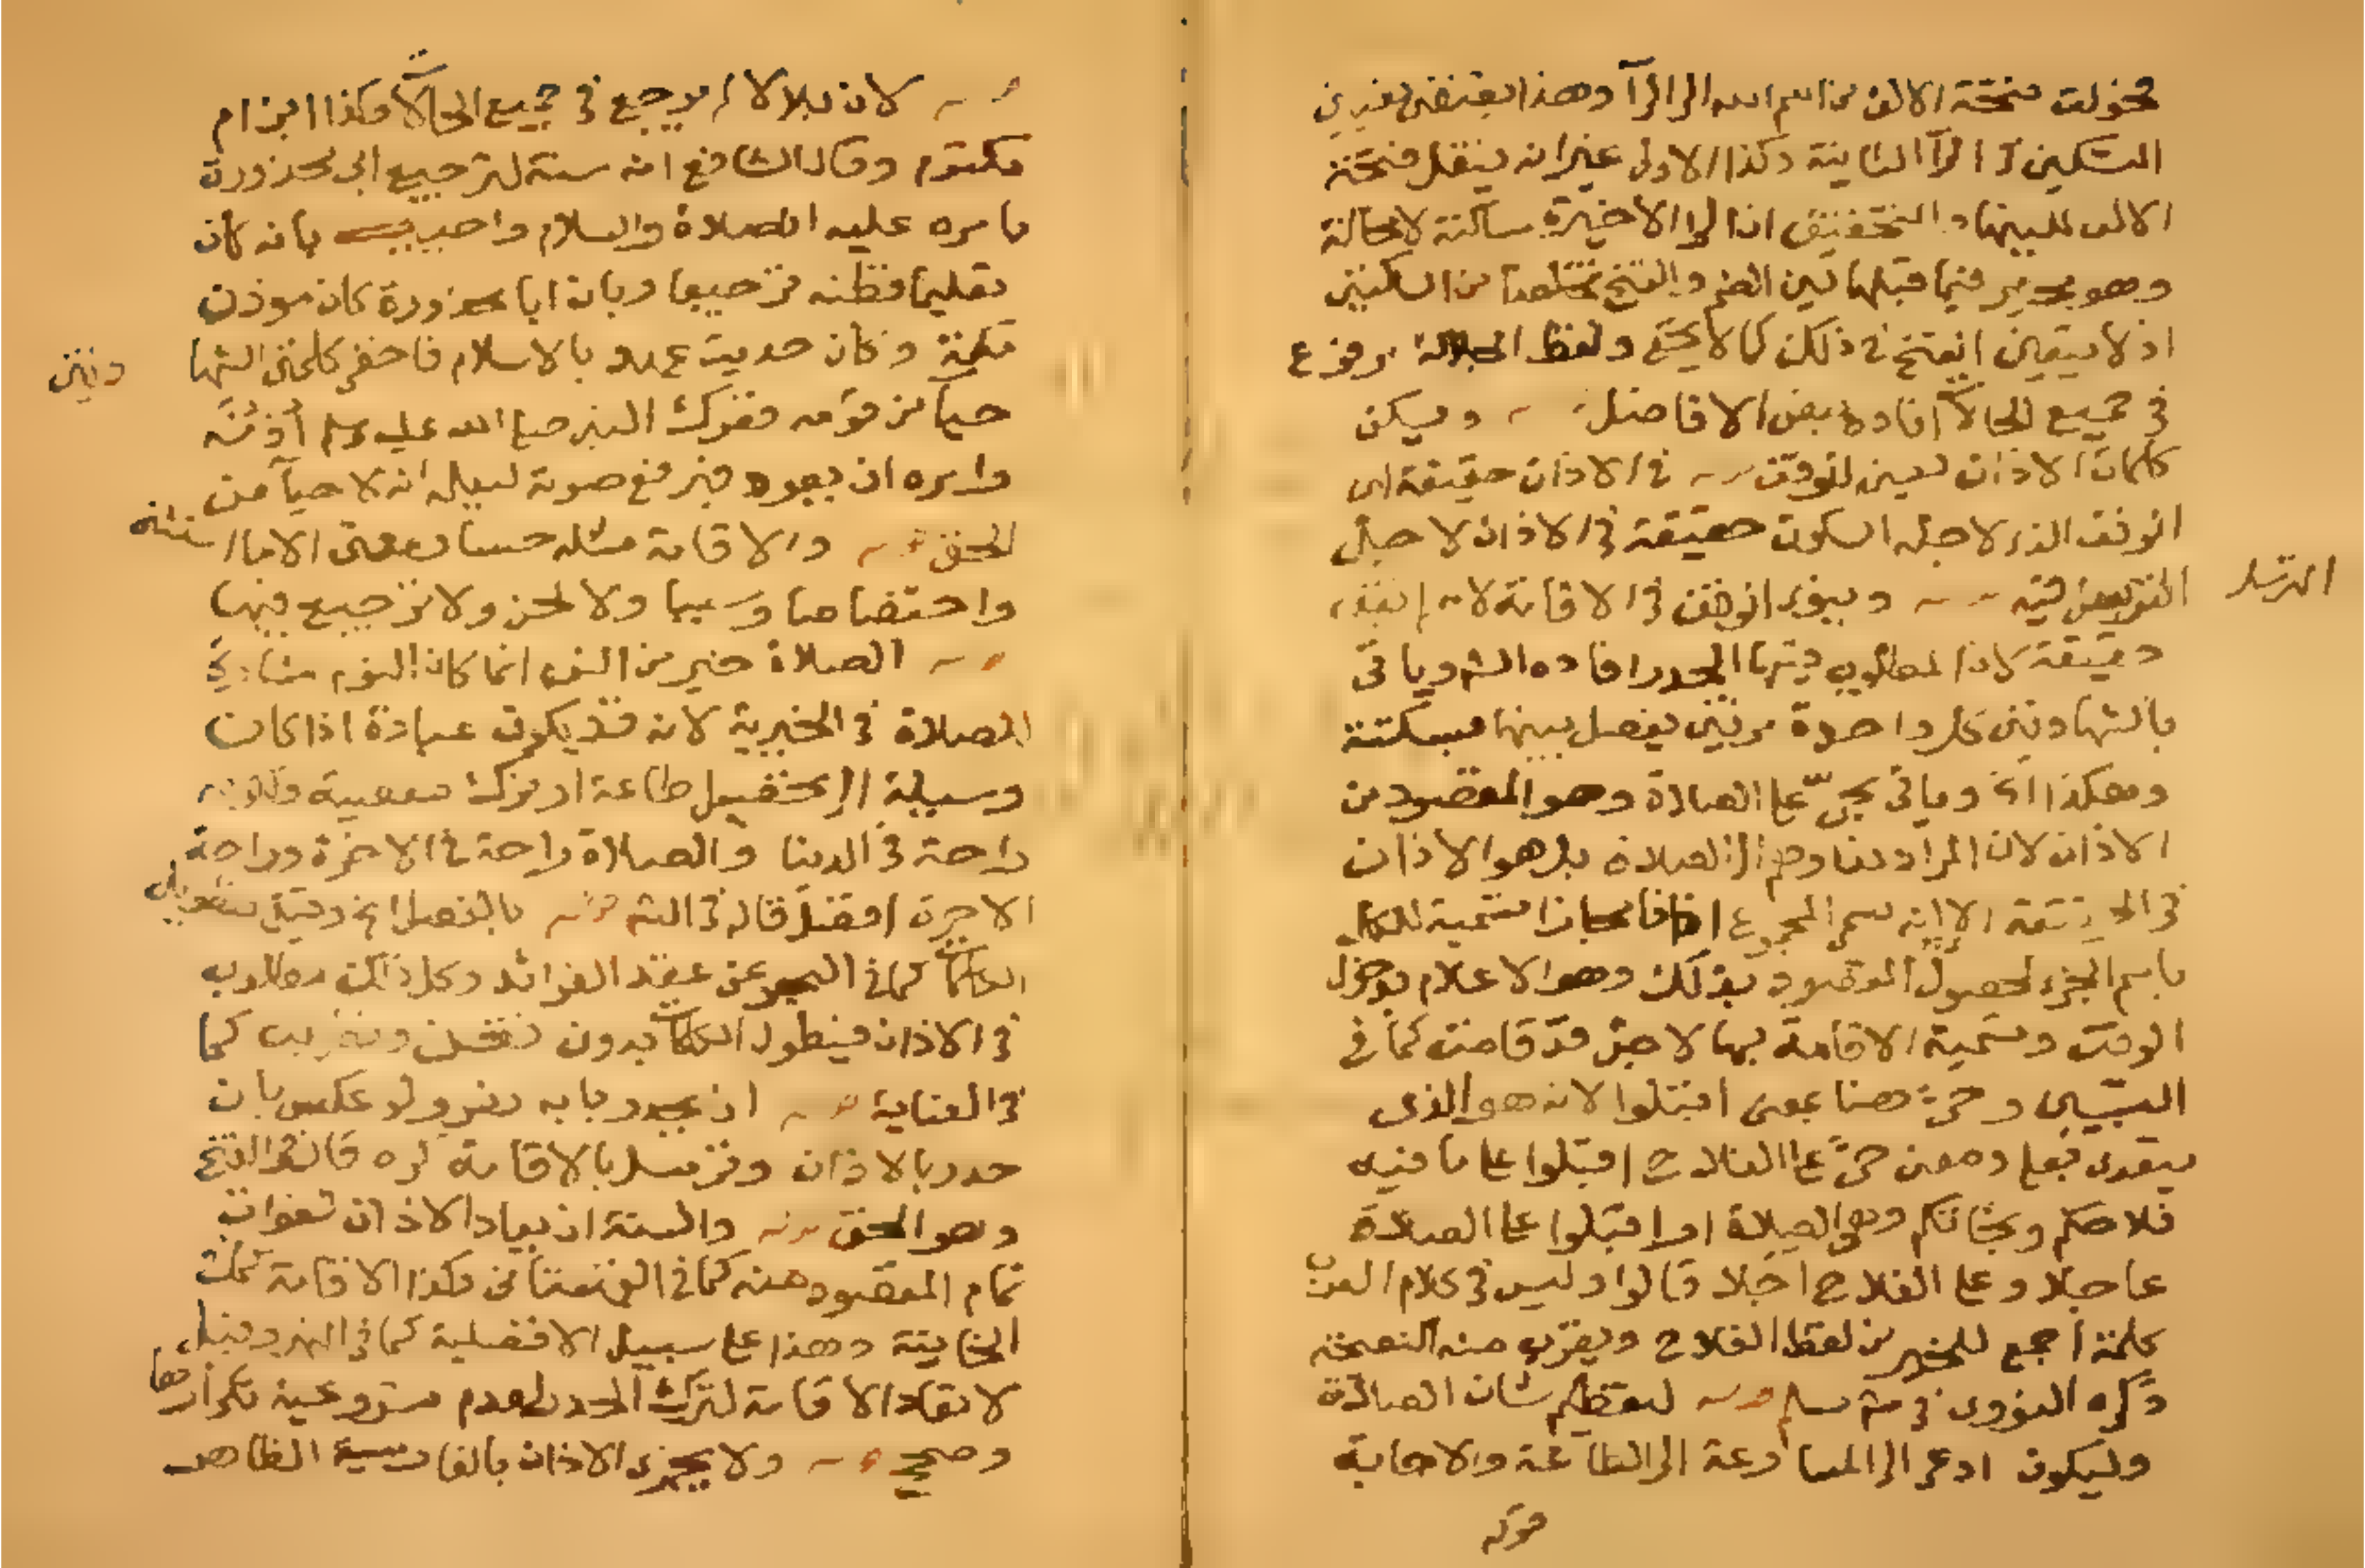 فحولت فتحة الالف من اسم الله الى الرآ وهذا يقتضى تعيين
التسكين فى الرآ الثانية وكذا الاولى غير انه ينقل فتحة
الالف للبينها والتحقيق ان الرا الاخيرة ساكنة لا محالة
وهو مخير فيما قبلها بين الضم والفتح تخلصا من الساكنين
اذ لا يتعين الفتح فى ذلك كما لا يخفى ولفظ الجلالة مرفوع
فى جميع الحالات افاده بعض الافاضل ويسكن
كلمات الاذان يعنى للوقف فى الاذان حقيقة اى
الوقف الذى لاجله السكون حقيقة فى الاذان لاجل
الترسل
فيه وينوى الوقف فى الاقامة لانه لم يقف
حقيقة لان المطلوب فيها الحدر افاده الش وياتى
بالشهادتين كل واحدة مرتين يفصل بينهما بسكتة
وهكذا الخ وياتى بحى على الصلاة وهو المقصود من
الاذان لان المراد هنا وهلم الى الصلاة بل هو الاذان
فى الحقيقة الا انه سمى المجموع اذانا مجازا تسمية للكل
باسم الجزء لحصول المقصود بذلك وهو الاعلام بدخول
الوقت وتسمية الاقامة بها لاجل قد قامت كما فى
التبيين وحى هنا بمعنى اقبلوا لانه هو الذى
يتعدى بعلى ومعنى حى على الفلاح اقبلوا على ما فيه
فلاحكم ونجاتكم وهو الصلاة او اقبلوا على الصلاة
عاجلا وعلى الفلاح اجلا قالوا وليس فى كلام العرب
كلمة اجمع للخير من لفظ الفلاح ويقرب منه النصيحة
ذكره النووى فى ش مسلم قوله لتعظيم شان الصلاة
وليكون ادعى الى المسارعة الى الطاعة والاجابة
قوله
قوله لان بلالا لم يرجع فى جميع الحالات وكذا ابن ام
مكتوم وقال الشافعى انه سنة لترجيع ابى محذورة
بامره عليه الصلاة والسلام واجيب بانه كان
تعليما فظنه ترجيعا وبان ابا محذورة كان موذن
مكة وكان حديث عهد بالاسلام فاخفى كلمتى الشها
دتين
حيآ من قومه ففرك النبى صلى الله عليه وسلم أُذُنَه
وامره ان يعود فيرفع صوته ليعلمه انه لا حيآ من
الحق قوله والاقامة مثله حسا ومعنى الا ما استثنى
واختصاصا وسببا ولا لحن ولا ترجيع فيها
قوله الصلاة خير من النوم انما كان النوم مشاركا
للصلاة فى الخيرية لانه قد يكون عبادة اذا كان
وسيلة الى تحصيل طاعة او ترك معصية
راحة فى الدنيا والصلاة راحة فى الاخرة وراحة
الاخرة افضل قاله فى الش قوله بالفصل الخ وقيل بتطويل
الكلمات كما فى البحر عن عقد الفرائد وكل ذلك مطلوب
فى الاذان فيطول الكلمات بدون تغن وتطريب كما
فى العناية قوله ان يحدر بابه نصر ولو عكس بان
حدر بالاذان وترسل بالاقامة كره قال فى الفتح
وهو الحق قوله والسنة ان يعاد الاذان لفوات
تمام المقصود منه كما فى القهستانى وكذا الاقامة كما فى
الخانية وهذا على سبيل الافضلية كما فى النهر وقيل
لا تعاد الاقامة لترك الحدر لعدم مشروعية تكرارها
وصحح قوله ولا يجزى الاذان بالفارسية الظاهر